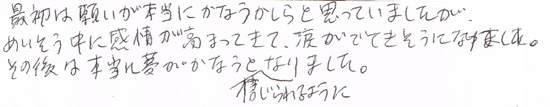 最初は願いが本当にかなうかしらと思っていましたが、
めいそう中に感情が高まってきて、涙がでてきそうになりました。
その後は本当に夢がかなうとなりました。
信じられるように